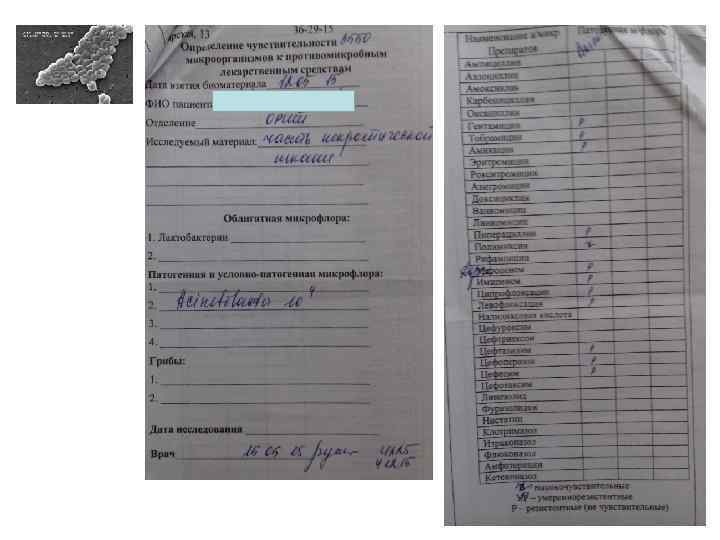 арская, 13 36-29-15
Определение чувствительности 2550
микроорганизмов к противомикробным
лекарственным средствам
Дата взятия биоматериала 12.05 15
ФИО пациента
Отделение ОРИТ
Исследуемый материал: часть некротической
ткани
Облигатная микрофлора:
1. Лактобактерии
2.
Патогенная и условно-патогенная микрофлора:
1.
2. Acinetobacter 10 4
3.
4.
Грибы:
1.
2.
Дата исследования
Врач 15 05 15
Наименование а/микр Патогенная м/флора
Препаратов
Ампициллин
Азлоциллин
Амоксиклав
Карбенициллин
Оксациллин
Гентамицин Р
Тобрамицин Р
Амикацин Р
Эритромицин
Рокситромицин
Азитромицин
Доксициклин
Ванкомицин
Линкомицин
Пиперациллин Р
Полимиксин
Рифампицин
Меропенем Р
Имипенем Р
Ципрофлоксацин Р
Левофлоксацин Р
Налидиксовая кислота
Цефуроксим
Цефтриаксон
Цефтазидим Р
Цефоперазон Р
Цефепим Р
Цефотаксим
Линезолид
Фуразолидон
Нистатин
Клотримазол
Итраконазол
Флюконазол
Амфотерицин
Кетоконазол
– высокочувствительные
УР – умереннорезистентные
Р – резистентные (не чувствительные)